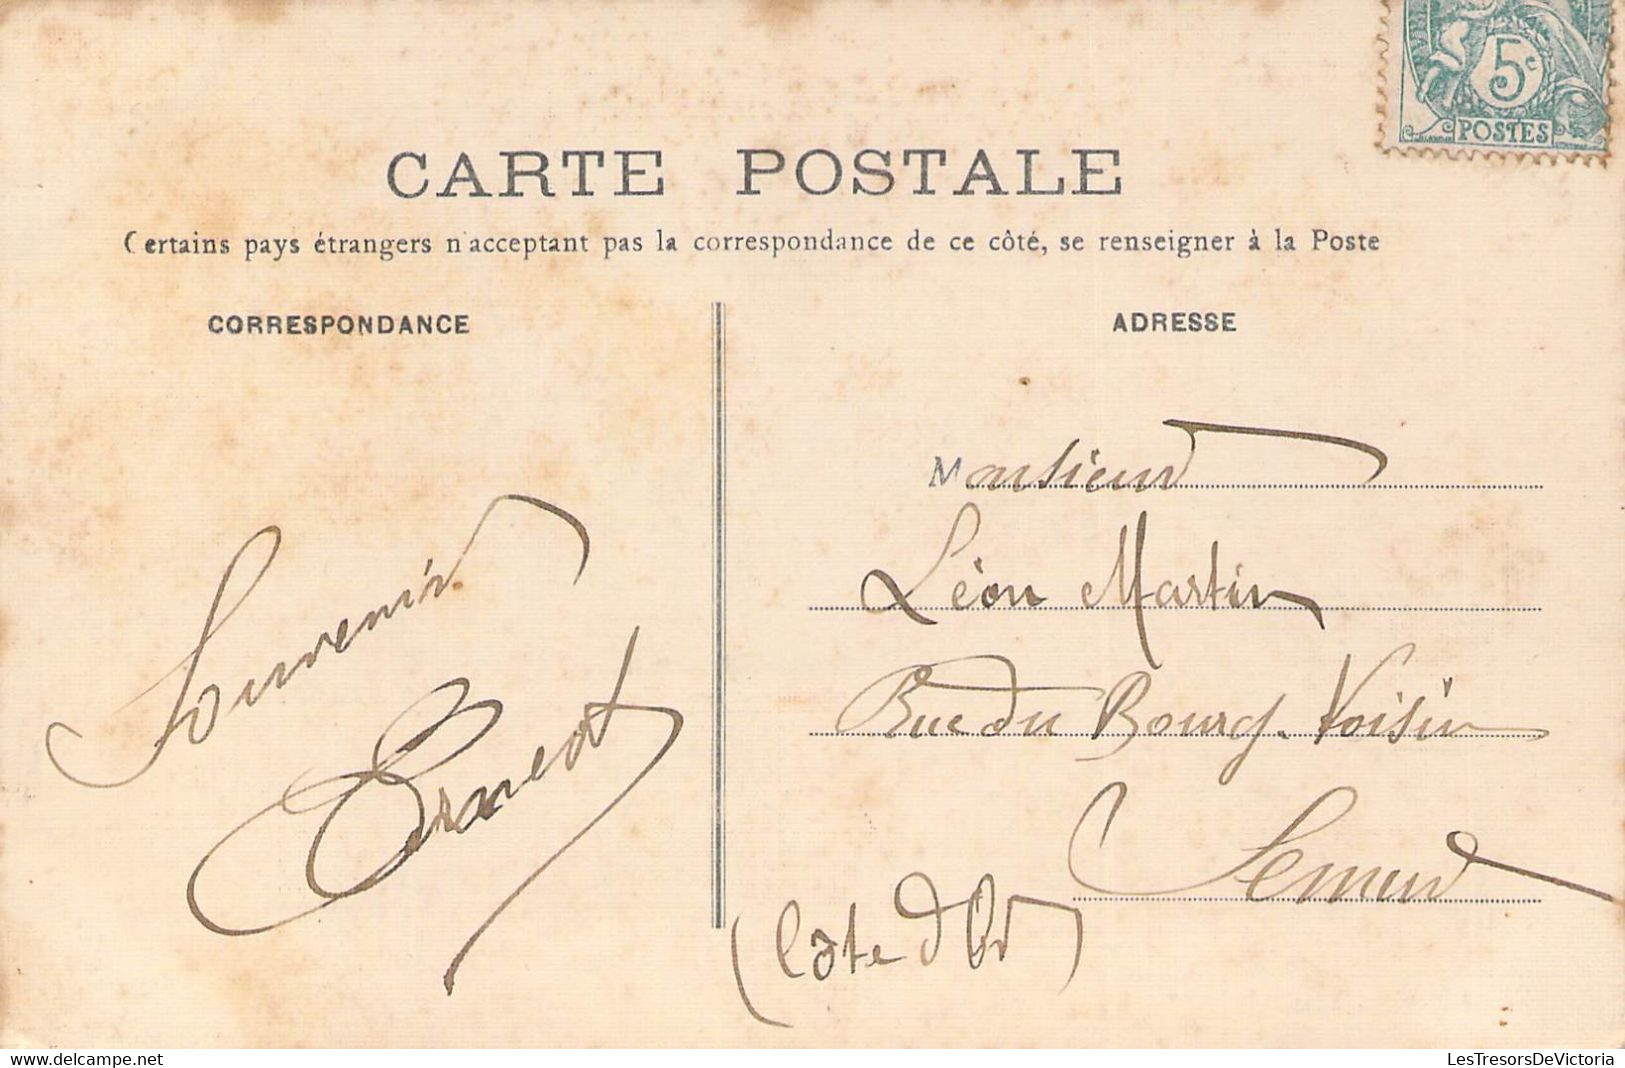 5c
POSTES
CARTE POSTALE
Certains pays étrangers n'acceptant pas la correspondance de ce côté, se renseigner à la Poste
CORRESPONDANCE
Souvenir
ADRESSE
Monsieur
Léon Martin
Rue du Bourg-Voisin
Semur
(Côte d'Or)
www.delcampe.net
LesTresorsDeVictoria